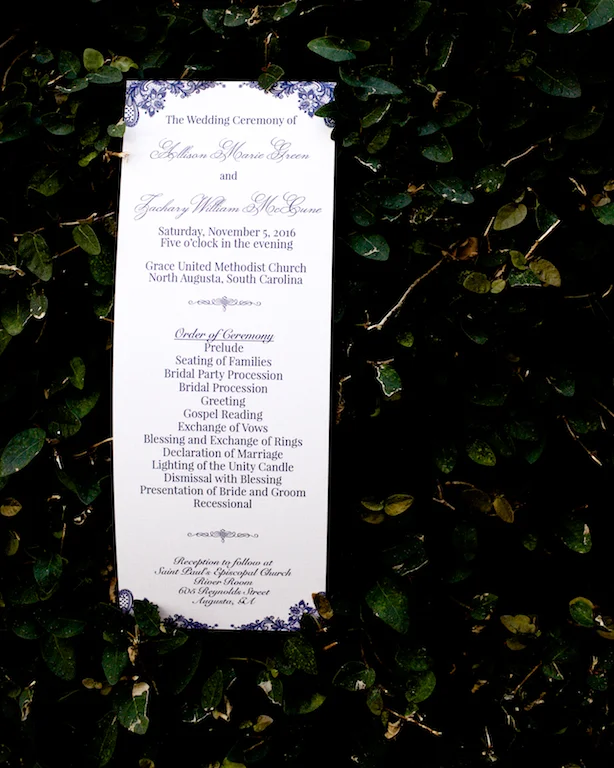 The Wedding Ceremony of
Allison Marie Green
and
Zachary William McCune
Saturday, November 5, 2016
Five o'clock in the evening
Grace United Methodist Church
North Augusta, South Carolina
Order of Ceremony
Prelude
Seating of Families
Bridal Party Procession
Bridal Procession
Greeting
Gospel Reading
Exchange of Vows
Blessing and Exchange of Rings
Declaration of Marriage
Lighting of the Unity Candle
Dismissal with Blessing
Presentation of Bride and Groom
Recessional
Reception to follow at
Saint Paul's Episcopal Church
River Room
605 Reynolds Street
Augusta, GA